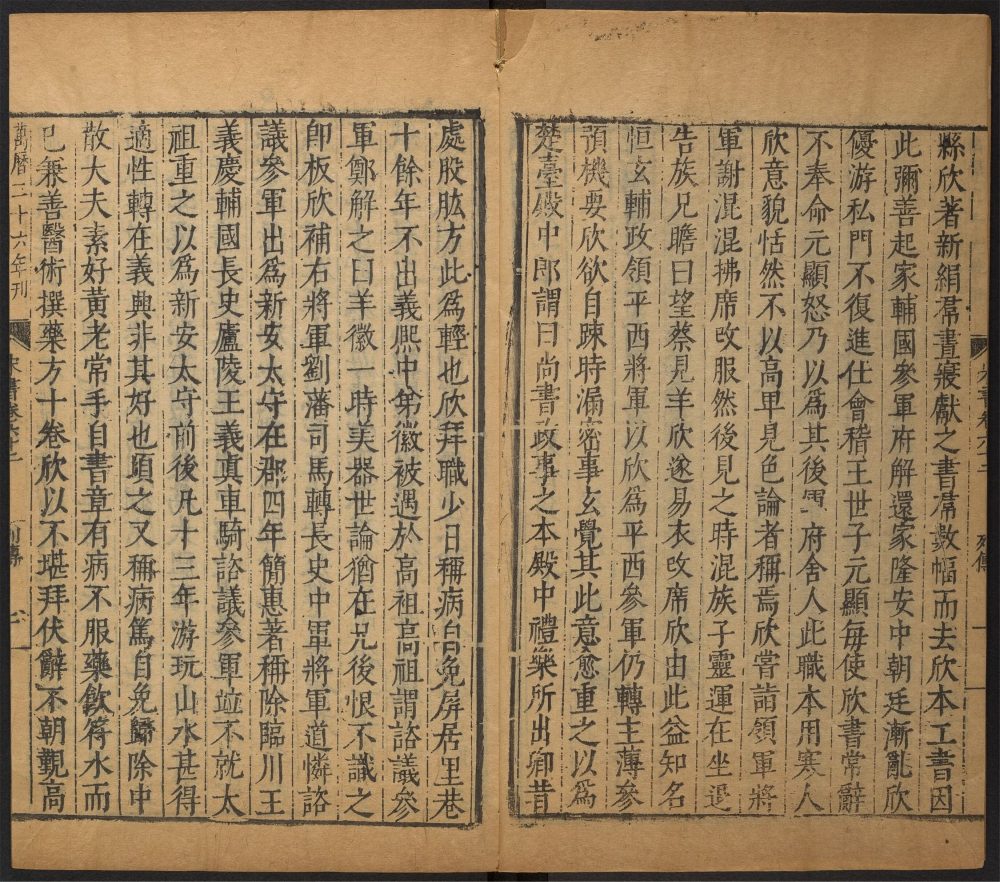 縣欣著新絹帬晝寢獻之書帬數幅而去欣本工書因
此彌善起家輔國參軍府解還家隆安中朝廷漸亂欣
優游私門不復進仕會稽王世子元顯每使欣書常辭
不奉命元顯怒乃以爲其後軍府舍人此職本用寒人
欣意貌恬然不以高卑見色論者稱焉欣嘗詣領軍將
軍謝混混拂席改服然後見之時混族子靈運在坐退
告族兄瞻曰望蔡見羊欣遂易衣改席欣由此益知名
恒玄輔政領平西將軍以欣爲平西參軍仍轉主薄參
預機要欣欲自踈時漏密事玄覺其此意愈重之以爲
楚臺殿中郎謂曰尚書政事之本殿中禮樂所出卿昔
處股肱方此爲輕也欣拜職少日稱病自免屏居里巷
十餘年不出義熙中弟徽被遇於高祖高祖謂諮議參
軍鄭解之曰羊徽一時美器世論猶在兄後恨不識之
卽板欣補右將軍劉藩司馬轉長史中軍將軍道憐諮
議參軍出爲新安太守在郡四年簡惠著稱除臨川王
義慶輔國長史廬陵王義真車騎諮議參軍竝不就太
祖重之以爲新安太守前後凡十三年游玩山水甚得
適性轉在義興非其好也頃之又稱病篤自免歸除中
散大夫素好黃老常手自書章有病不服藥飲符水而
已兼善醫術撰藥方十卷欣以不堪拜伏辭不朝覲高
萬曆二十六年刊
宋書卷六十二 列傳